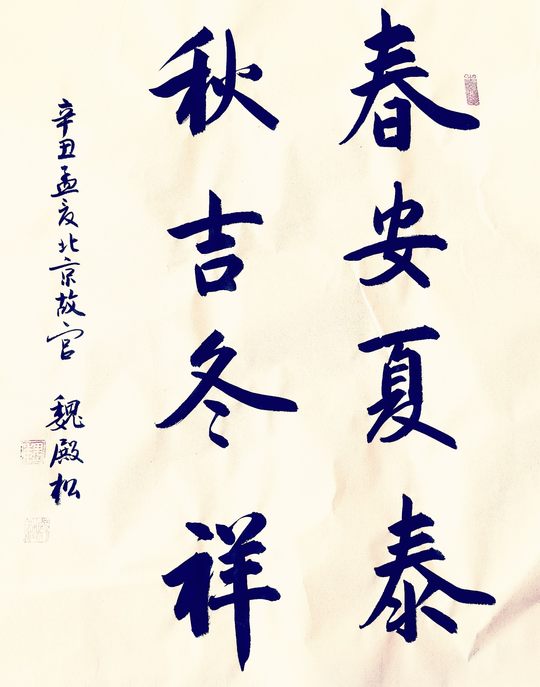 春安夏泰
秋吉冬祥
辛丑孟夏北京故宫 魏殿松